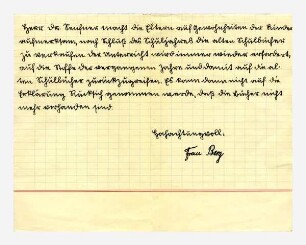 Herr Dr. Seichner macht die Eltern auf Gewohnheiten der Kinder
aufmerksam, nach Schluß des Schuljahres die alten Schulbücher
zu verkaufen. Im Unterricht wird immer wieder erfordert,
auf die Stoffe der vergangenen Jahre und damit auf die al-
ten Schulbücher zurückzugreifen. Es kann dann nicht auf die
Erklärung Rücksicht genommen werden, daß die Bücher nicht
mehr vorhanden sind.
Hochachtungsvoll.
Frau Berg